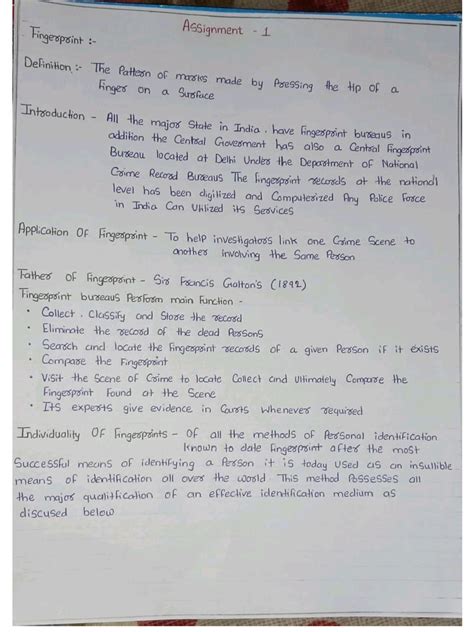 Assignment - 1
Fingerprint :-
Definition :- The Pattern of marks made by Pressing the tip of a
finger on a Surface
Introduction - All the major State in India . have fingerprint bureaus in
addition the Central Goverment has also a Central Fingerprint
Bureau located at Delhi Under the Department of National
Crime Record Bureaus The fingerprint records at the national
level has been digilized and Computerized Any Police Force
in India Can Utilized its Services
Application Of Fingerprint - To help investigators link one Crime Scene to
another Involving the Same Person
Father of Fingerprint - Sir Francis Galton's (1892)
Fingerprint bureaus Perform main Function -
• Collect . Classify and Store the record
• Eliminate the record of the dead Persons
• Search and locate the Fingerprint records of a given Person if it exists
• Compare the Fingerprint
• Visit the Scene of Crime to locate Collect and Ultimately Compare the
Fingerprint Found at the Scene
• Its experts give evidence in Carts Whenever required
Individuality Of Fingerprints - Of all the methods of Personal identification
known to date fingerprint after the most
Successful means of identifying a Person it is today Used as an insullible
means of identification all over the world This method Possesses all
the major qualitification of an effective identification medium as
discused below